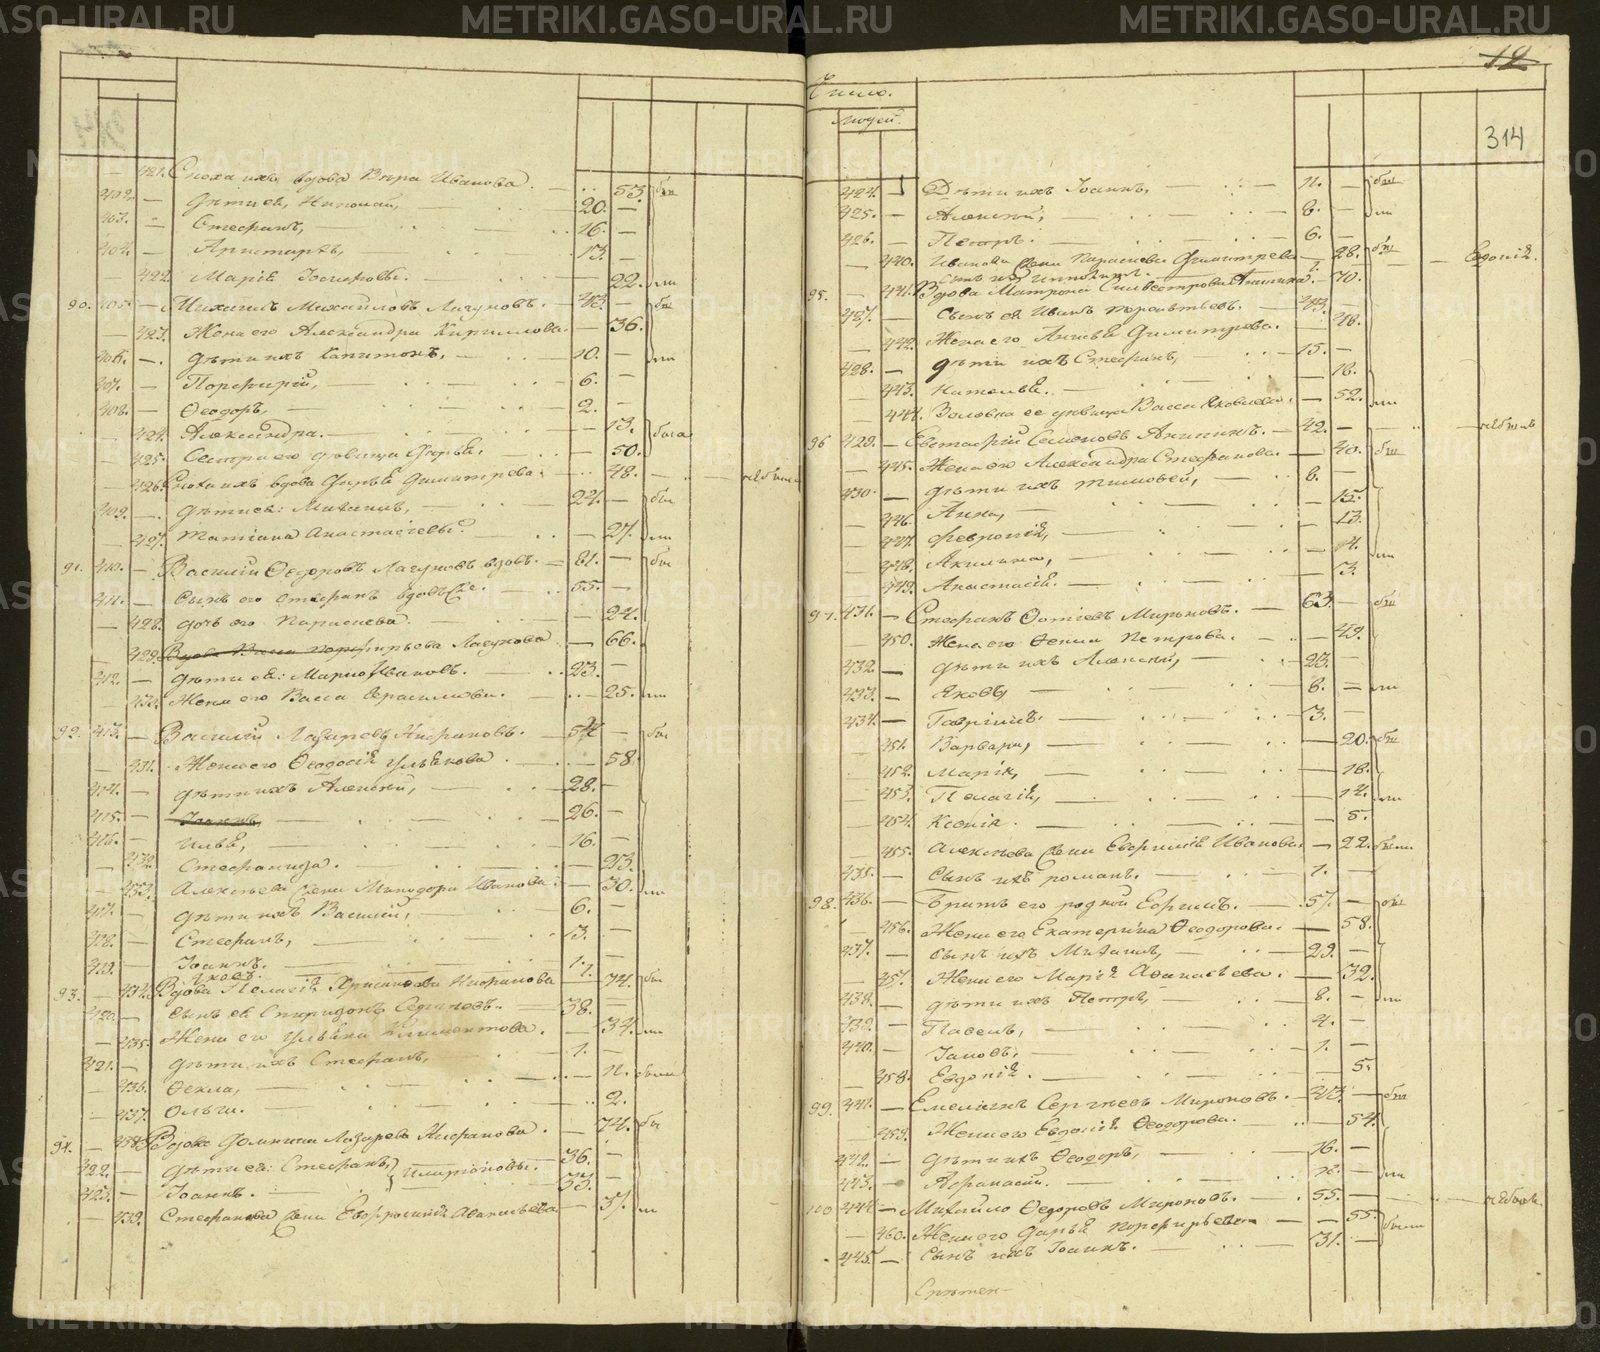 METRIKI.GASO-URAL.RU
421. Сноха ихъ вдова Вѣра Иванова. 53. был
402. Дѣти ея, Николай, 20.
403. Стефанъ, 16.
404. Аристархъ, 13.
422. Марія Іосифовы. 22.
90. 405. Михаилъ Михайловъ Лагуновъ. 43. был
423. Жена его Александра Кириллова. 36.
406. Дѣти ихъ Капитонъ, 10.
407. Порфирій, 6.
408. Ѳеодоръ, 2.
424. Александра. 13. была
425. Сестра его дѣвица Дарья, 50.
426. Сноха ихъ вдова Дарья Димитрева. 48. не была
409. Дѣти ея: Михаилъ, 24. был
427. Татіана Анастасіевы. 27.
91. 410. Василій Ѳедоровъ Лагуновъ вдовъ. 81. был
411. Сынъ его Стефанъ вдовъ же. 55.
428. Дочь его Параскева. 24.
429. Вдова Васса Порфирьева Лагунова 66.
412. Дѣти ея: Марко Ивановъ. 23.
430. Жена его Васса Герасимова. 25.
92. 413. Василій Лазаревъ Аифановъ. 54. был
431. Жена его Ѳеодосія Ульянова 58.
414. Дѣти ихъ Алексѣй, 28.
415. Іоаннъ, 26.
416. Илья, 16.
432. Стефанида. 23.
433. Алексѣева жена Минодора Иванова. 30.
417. Дѣти ихъ Василій, 6.
418. Стефанъ, 3.
419. Іоаннъ. 1.
Яковъ. 1.
93. 434. Вдова Пелагія Аифанова 74. был
420. Сынъ ея Спиридонъ 38.
435. Жена его Ульяна Климентова. 34.
421. Дѣти ихъ Стефанъ, 1.
436. Ѳекла, 11. были
437. Ольга. 2.
94. 438. Вдова Домника Лазарева Аифанова. 74. был
422. Дѣти ея: Стефанъ, 36.
423. Іоаннъ. 33.
439. Стефанова жена Евфросинія Аванасьева 37.
Число
Людей.
12
314
424. Дѣти ихъ Іоаннъ, 11. был
425. Алексѣй, 8.
426. Петръ. 6.
440. Иванова жена Параскева Димитрева 28. был Евдокія.
95. 441. Вдова Матрона Силвестрова Аникина. 70.
427. Сынъ ея Иванъ 43.
442. Жена его Анисья Димитрева. 48.
428. Дѣти ихъ Стефанъ, 15.
443. Наталья. 18.
444. Золовка ее дѣвица Васса Яковлева. 52.
96 429. Евстафій Семеновъ Аникинъ. 42. не былъ
445. Жена его Александра Стефанова. 40. был
430. Дѣти ихъ Тимофей, 8.
446. Анна, 15.
447. Февронія, 13.
448. Акилина,
449. Анастасія. 3.
97. 431. Стефанъ Фотіевъ Мироновъ. 63. был
450. Жена его Ѳекла Петрова. 49.
432. Дѣти ихъ Алексѣй, 23.
433. Яковъ, 8.
434. Гавріилъ. 3.
451. Варвара, 20. был
452. Марія, 18.
453. Пелагія, 14.
454. Ксенія. 5.
455. Алексѣева жена Евгенія Иванова. 22. были
435. Сынъ ихъ Романъ. 1.
98. 436. Братъ его родной Сергій. 57. был
456. Жена его Екатерина Ѳеодорова. 58.
437. Сынъ ихъ Михаилъ, 29.
457. Жена его Марія Аванасьева. 32.
438. Дѣти ихъ Петръ, 8.
439. Павелъ, 4.
440. Іаковъ. 1.
458. Евдокія. 5.
99. 441. Емеліанъ Сергѣевъ Мироновъ. 43. был
459. Жена его Евдокія Ѳеодорова. 54.
442. Дѣти ихъ Ѳеодоръ, 16.
443. Аѳанасій.
100 444. Михайло Ѳедоровъ Мироновъ. 55. не былъ
460. Жена его Дарья Порфирьева 55. были
445. Сынъ ихъ Іоаннъ. 31.